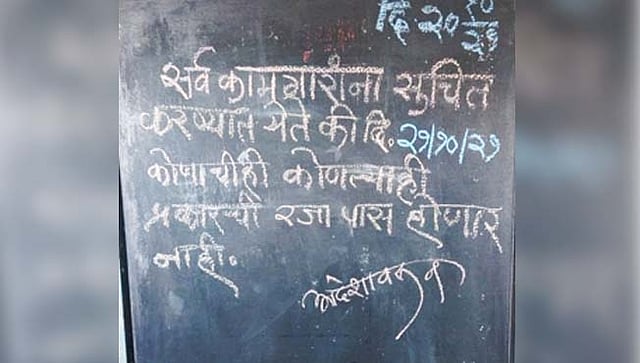 दि २० १०/२१
सर्व कामगारांना सुचित
करण्यात येते की दि. २१/१०/२१
कोणाचीही कोणत्याही
प्रकारची रजा पास होणार
नाही.
आदेशावरून